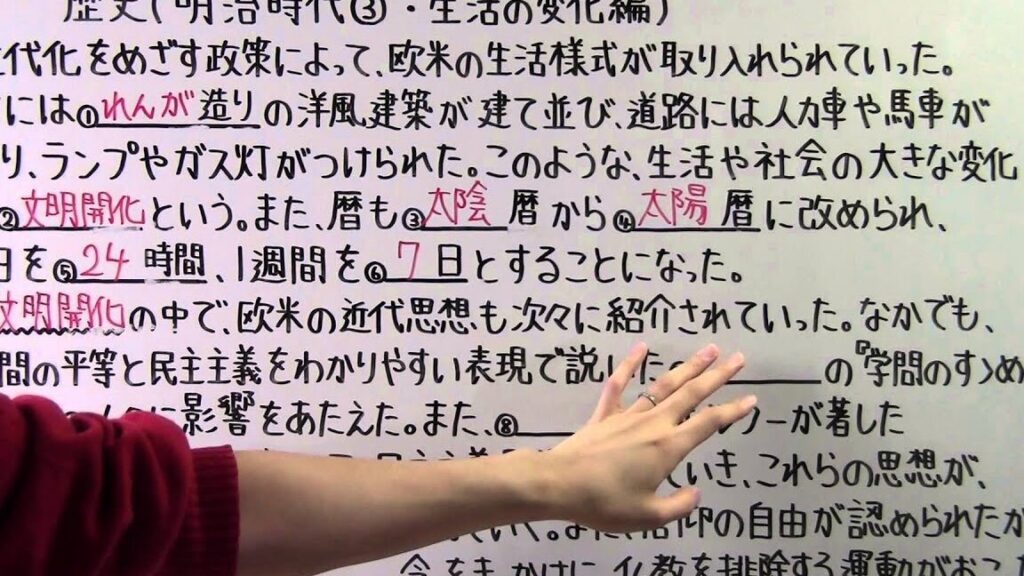 歴史(明治時代③・生活の変化編)
代化をめざす政策によって、欧米の生活様式が取り入れられていった。
には①れんが造りの洋風建築が建て並び、道路には人力車や馬車が
り、ランプやガス灯がつけられた。このような、生活や社会の大きな変化
②文明開化という。また、暦も③太陰暦から④太陽暦に改められ、
日を⑤24時間、1週間を⑥7日とすることになった。
文明開化の中で、欧米の近代思想も次々に紹介されていった。なかでも、
間の平等と民主主義をわかりやすい表現で説いた の『学問のすゝめ
に影響をあたえた。また、⑧ ルソーが著した
いき、これらの思想が、
ていく。また、信仰の自由が認められたが
をきっかけに、仏教を排除する運動がおこ